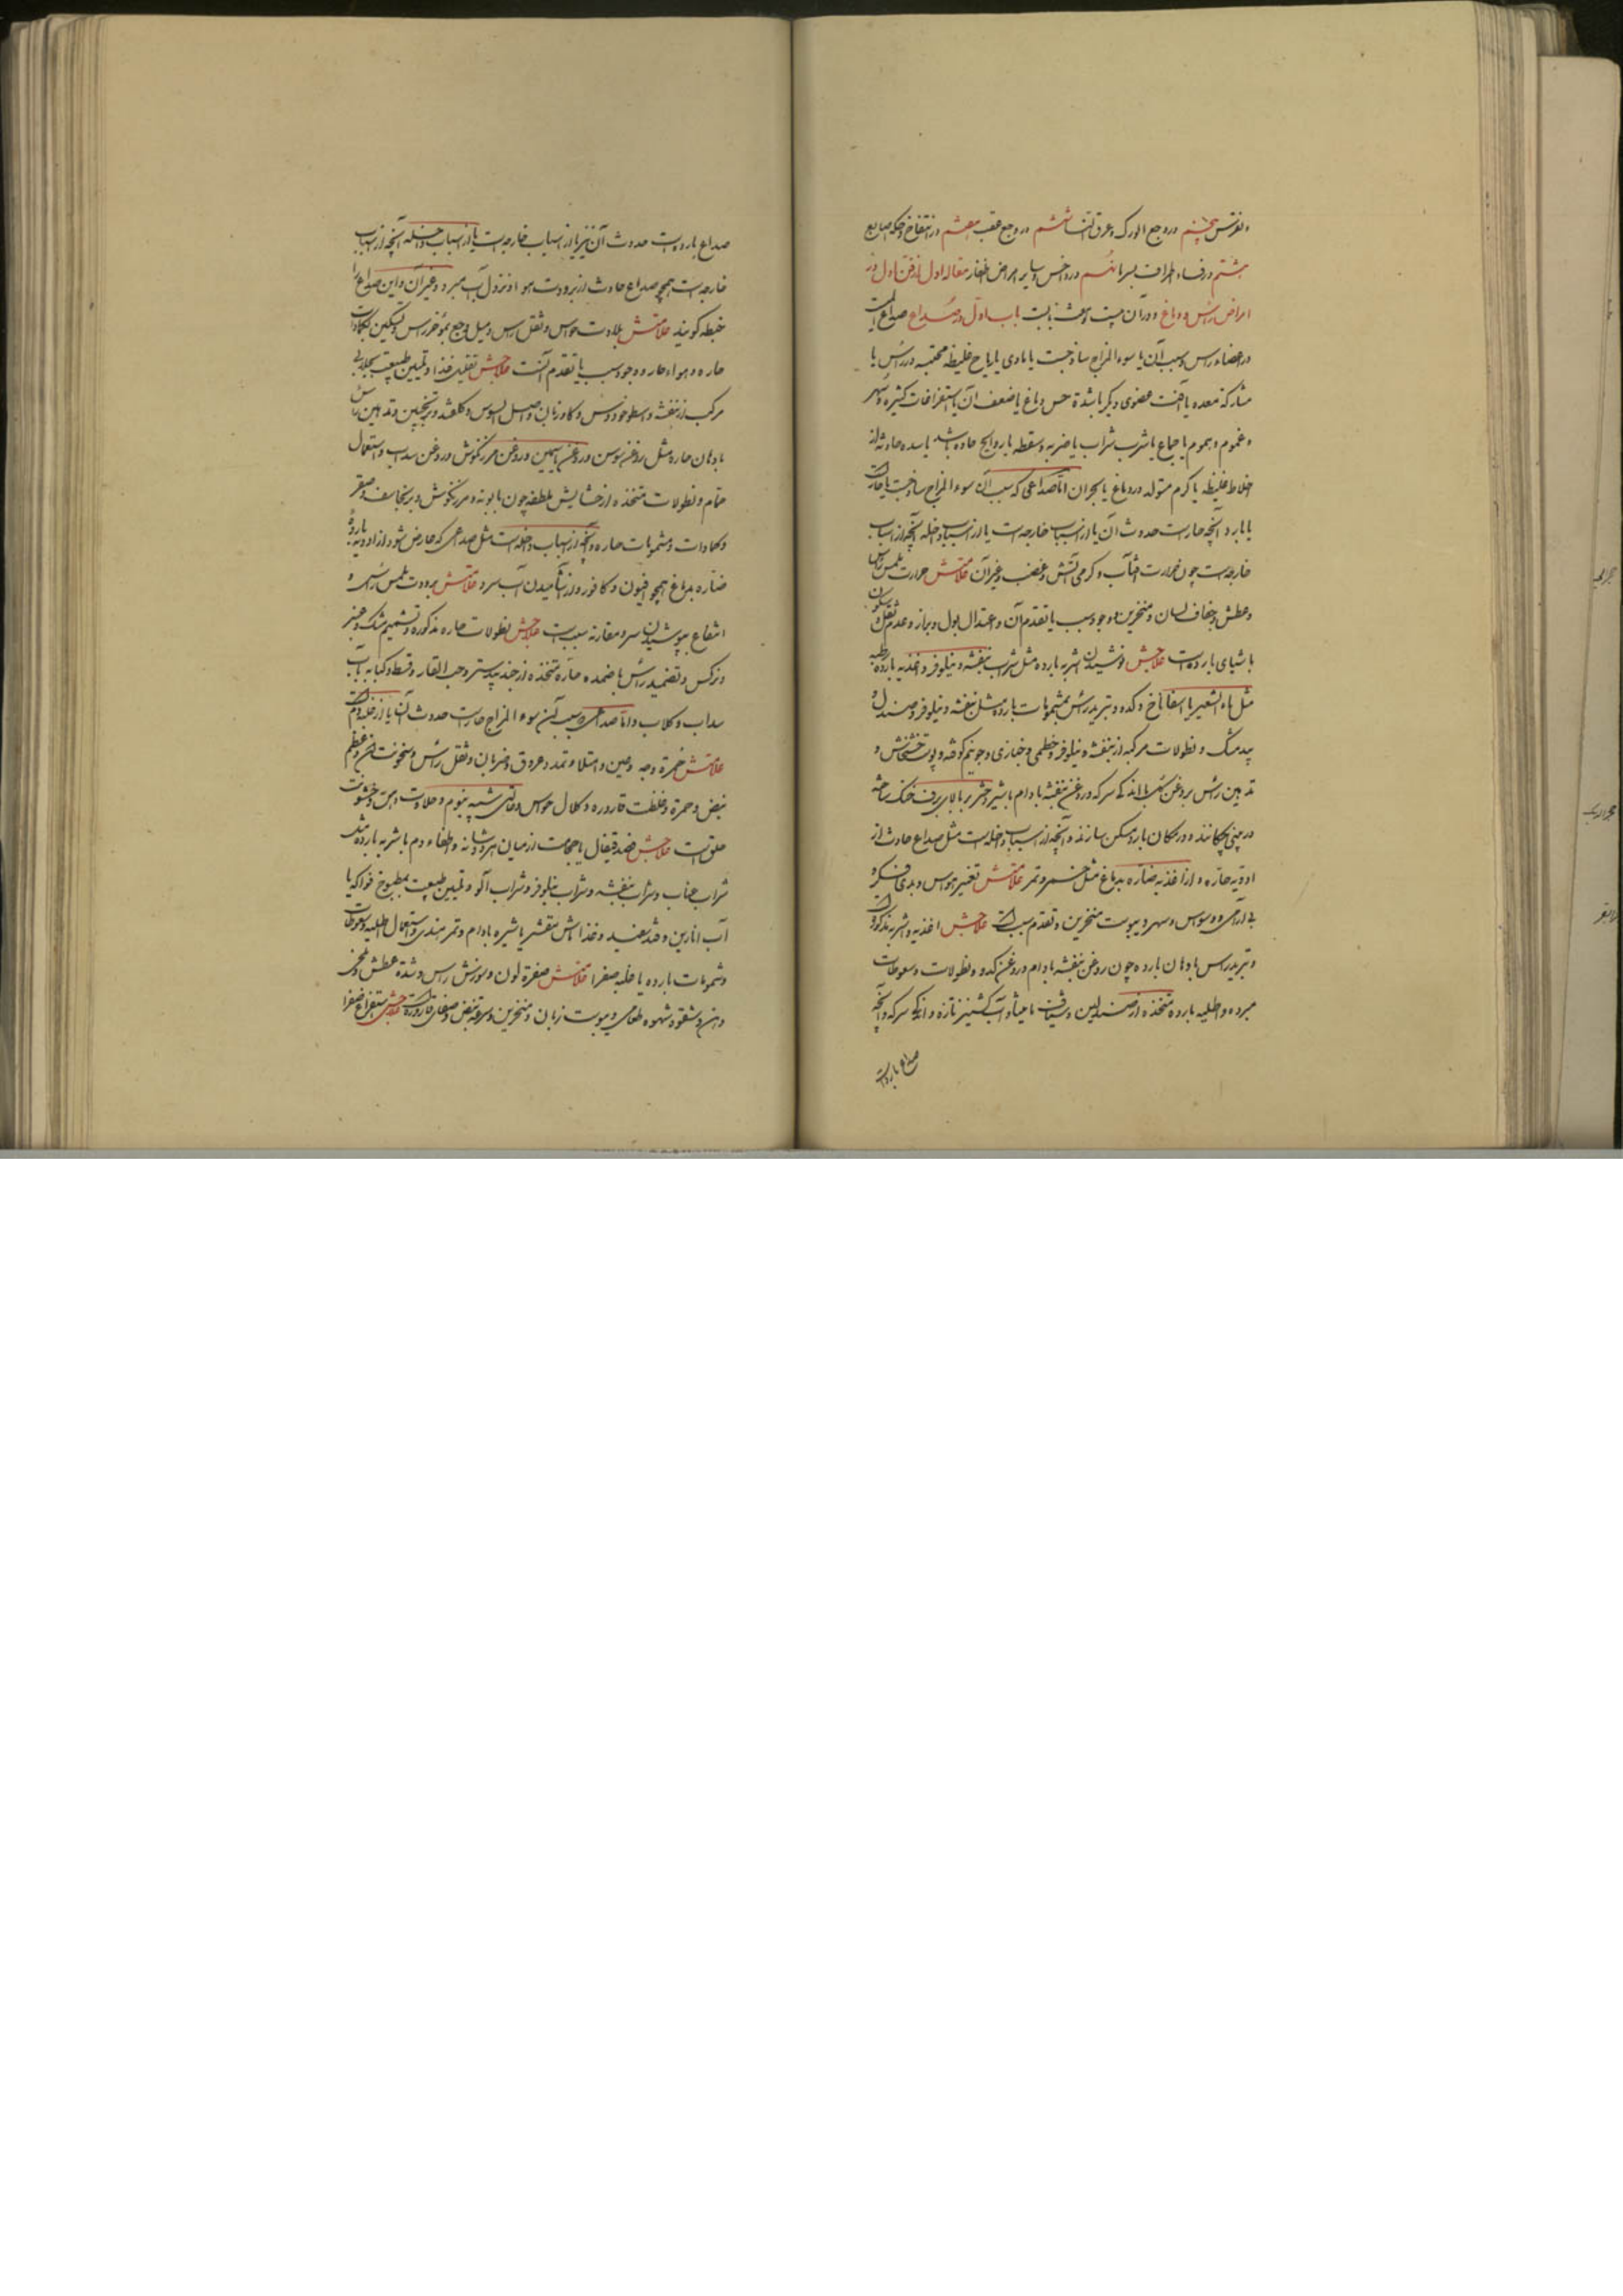 و نقرس پنجم در وجع الورک و عرق النسا ششم در وجع عقب هفتم در انتفاخ و حکه اصابع
هشتم در فساد اطراف بسرما نهم در داخس و سایر امراض اظفار مقاله اول از فن اول در
امراض رأس و دماغ و در آن بیست و هشت بابست باب اول در صداع صداع المیست
در اعضاء راس و سبب آن یا سوء المزاج ساذجست یا مادی یا ریاح غلیظه محتقنه در رأس یا
مشارکة معده یا آفت عضوی دیگر یا شدة حس دماغ یا ضعف آن یا استفراغات کثیره و سهر
و غموم و هموم یا جماع یا شرب شراب یا ضربه و سقطه یا روایح حاده باشد یا سده حادثه از
اخلاط غلیظه یا کرم متولد در دماغ یا بحران اما صداعی که سبب آن سوء المزاج ساذجست یا حارست
یا بارد و آنچه حارست حدوث آن یا از اسباب خارجه است یا از اسباب داخله آنچه از اسباب
خارجه است چون حرارت آفتاب و کرمی آتش و غضب و غیر آن علامتش حرارت ملمس راس
و عطش و جفاف لسان و منخرین و وجود سبب یا تقدم آن و اعتدال بول و براز و عدم ثقل و سکون
باشیای بارده است علاجش نوشیدن اشربه بارده مثل شراب بنفشه و نیلوفر و اغذیه بارده رطبه
مثل ماء الشعیر با اسفاناخ و کدو و تبرید رأس بمشمومات بارده مثل بنفشه و نیلوفر و صندل و
بیدمشک و نطولات مرکبه از بنفشه و نیلوفر و خطمی و خبازی و جو نیم کوفته و پوست خشخاش و
تدهین رأس بروغن کل با اندکی سرکه و روغن بنفشه بادام با شیر دختر بر بالای برف خنک ساخته
در بینی چکانند و در مکان بارد مسکن سازند و آنچه از اسباب داخله است مثل صداع حادث از
ادویه حاره و از اغذیه ضاره بدماغ مثل خمر و تمر علامتش تغییر حواس و بدی فکر و
بی آرامی و وسواس و سهر و یبوست منخرین و تقدم سبب است علاجش اغذیه و اشربه مذکوره است
و تبرید راس بادهان بارده چون روغن بنفشه بادام و روغن کدو و نطولات و سعوطات
مبرده و اطلیه بارده متخذه از صندلین و شیاف مامیثا و آب کشنیز تازه و اندکی سرکه و آنچه
صداع باردست
صداع باردست حدوث آن نیز یا از اسباب خارجه است یا از اسباب داخله آنچه از اسباب
خارجه است همچو صداع حادث از برودت هوا و نزول آب سرد و غیر آن و این صداع را
خبطه کویند علامتش بلادت حواس و ثقل راس و میل وجع بمؤخر راس و تسکین بکمادات
حاره و هواء حار و وجود سبب یا تقدم آنست علاجش تقلیل غذا و تلیین طبیعت بجلابی
مرکب از بنفشه و اسطوخودوس و کاوزبان و اصل السوس و کلقند و ترنجبین و تدهین رأس
بادهان حاره مثل روغن سوسن و روغن یاسمین و روغن مرزنکوش و روغن سداب و استعمال
حمام و نطولات متخذه از حشایش ملطفه چون بابونه و مرزنکوش و برنجاسف و صعتر
و کمادات و مشمومات حاره و آنچه از اسباب داخله است مثل صداعی که عارض شود از ادویه بارده
ضاره بدماغ همچو افیون و کافور و از آشامیدن آب سرد علامتش برودت ملمس رأس و
انتفاع بپوشیدن سر و مقارنه سببست علاجش نطولات حاره مذکوره و تشمیم مشک و عنبر
و نرکس و تضمید رأس باضمده حاره متخذه از جندبیدستر و حب الغار و قسط و کبابه بآب
سداب و کلاب و اما صداعی که سبب آن سوء المزاج حارست حدوث آن یا از غلبه دم است
علامتش حمرة وجه و عین و امتلاء و تمدد عروق و ضربان و ثقل رأس و سخونت آن و عظم
نبض و حمرة و غلظت قاروره و کلال حواس و حالتی شبیه بنوم و حلاوت دهن و خشونت
حلق است علاجش فصد قیفال یا حجامت از میان هر دو شانه و اطفاء دم باشربه بارده مثل
شراب عناب و شراب بنفشه و شراب نیلوفر و شراب آلو و تلیین طبیعت بمطبوخ فواکه یا
آب انارین و قند سفید و غذا ماش مقشر با شیره بادام و تمر هندی و استعمال اطلیه و سعوطات
و شمومات بارده یا غلبه صفرا علامتش صفرة لون و سوزش راس و شدة عطش و تلخی
دهن و سقوط شهوه طعام و یبوست زبان و منخرین و سرعة نبض و صفای قاروره است علاجش استفراغ صفرا